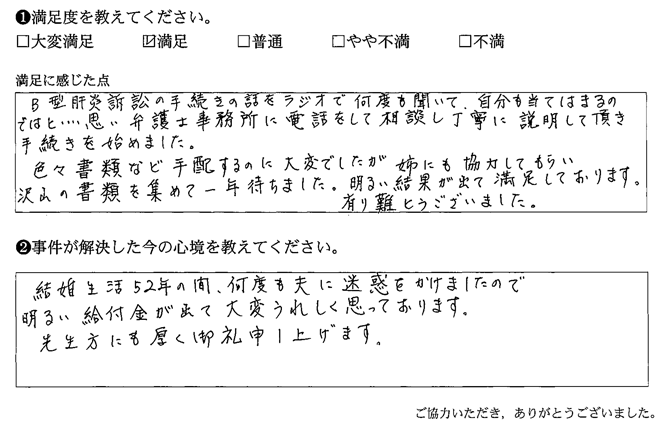 ❶満足度を教えてください。
□大変満足 ☑満足 □普通 □やや不満 □不満
満足に感じた点
B型肝炎訴訟の手続きの話をラジオで何度も聞いて、自分も当てはまるの
ではと…思い弁護士事務所に電話をして相談し丁寧に説明して頂き
手続きを始めました。
色々書類など手配するのに大変でしたが姉にも協力してもらい
沢山の書類を集めて一年待ちました。明るい結果が出て満足しております。
有り難とうございました。
❷事件が解決した今の心境を教えてください。
結婚生活52年の間、何度も夫に迷惑をかけましたので
明るい給付金が出て大変うれしく思っております。
先生方にも厚く御礼申し上げます。
ご協力いただき，ありがとうございました。